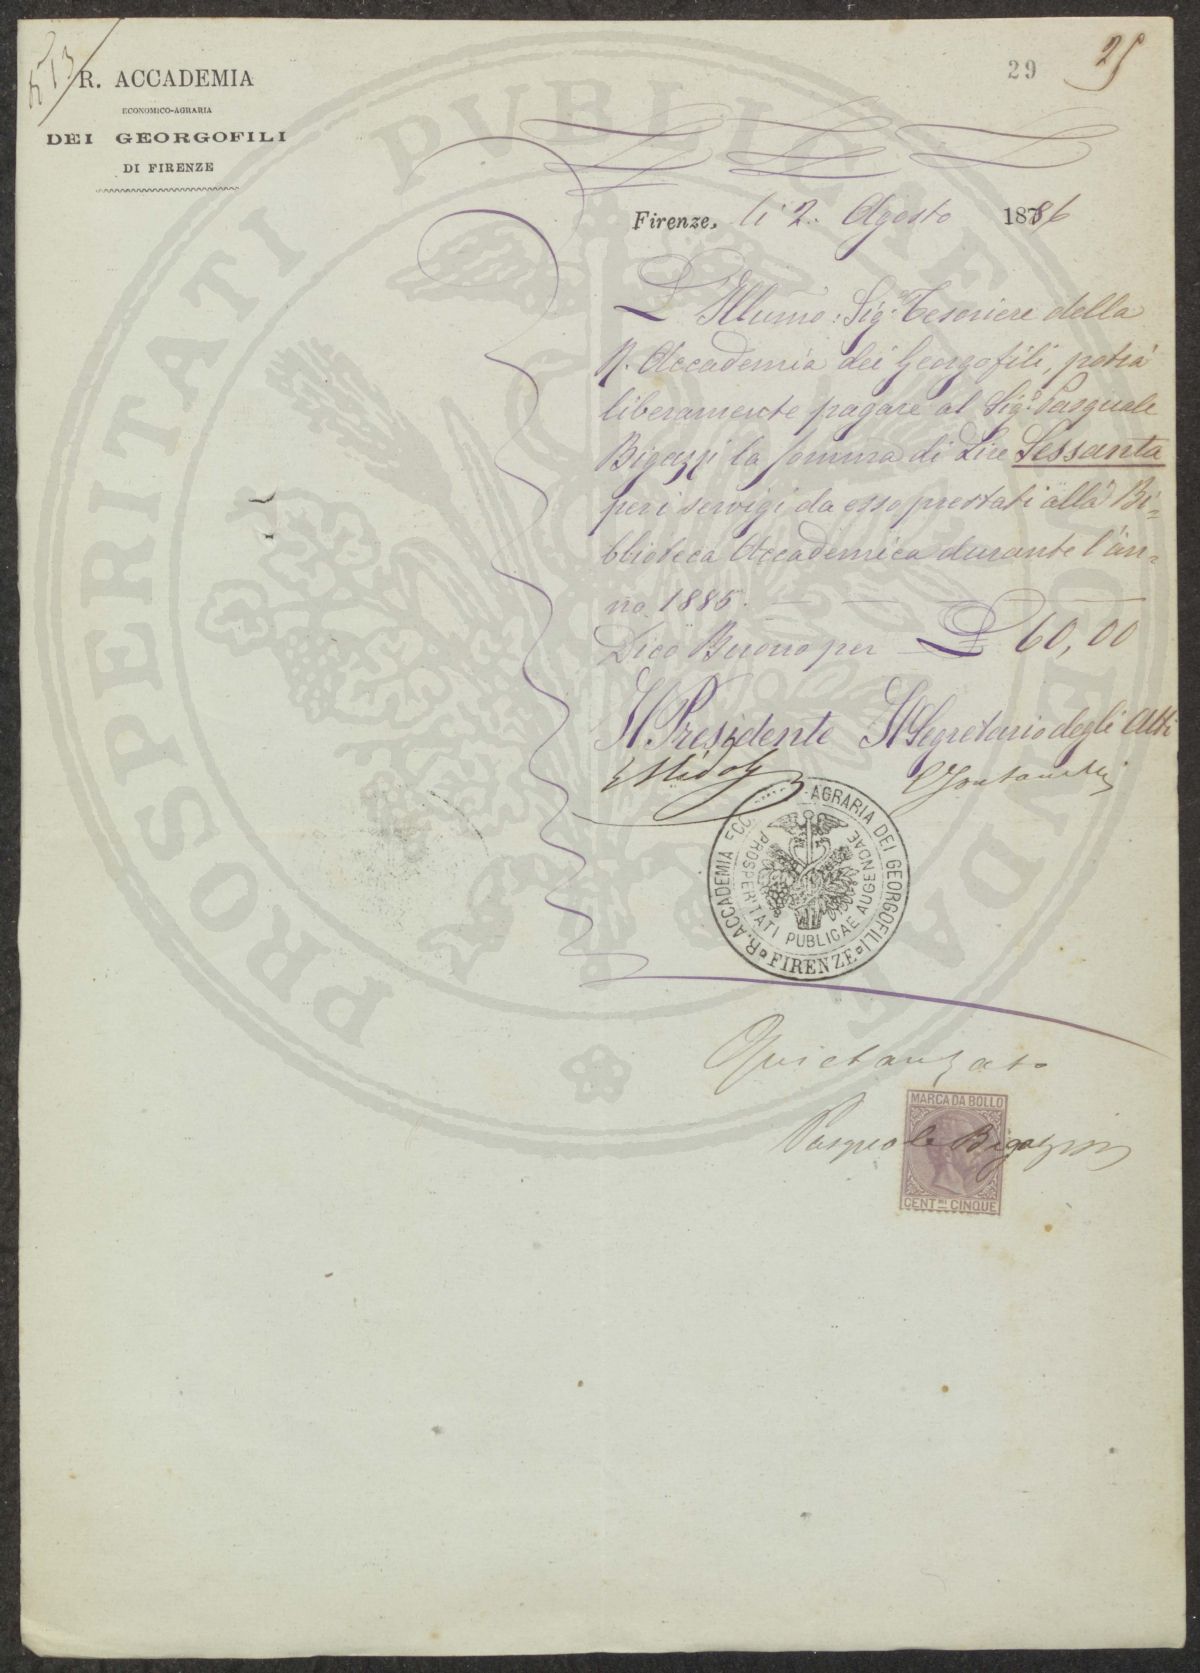 N 13
R. ACCADEMIA
ECONOMICO-AGRARIA
DEI GEORGOFILI
DI FIRENZE
29
Firenze, li 2. Agosto 1886
L'Illumo: Sigr. Tesoriere della
R. Accademia dei Georgofili, potrà
liberamente pagare al Sigr. Pasquale
Bigazzi la somma di Lire Sessanta
per i servigi da esso prestati alla Bi-
blioteca Accademica durante l'an-
no 1885.
Dico Buono per L 60,00
Il Presidente Il Segretario degli Atti
R. ACCADEMIA ECO AGRARIA DEI GEORGOFILI
PROSPERITATI PUBLICAE AUGENDAE
FIRENZE
Quietanzato
MARCA DA BOLLO
Pasquale Bigazzi
CENTMI CINQUE
PROSPERITATI PVBLICAE AVGENDAE